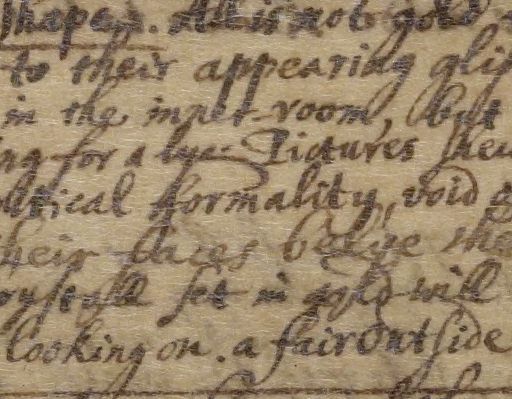 shapes. All is not gold
to their appearing glis
in the inner-room, but
ing for a lye. Pictures shew
olitical formality, void o
heir faces belye the
rystall set in gold will
looking on. a fair outside